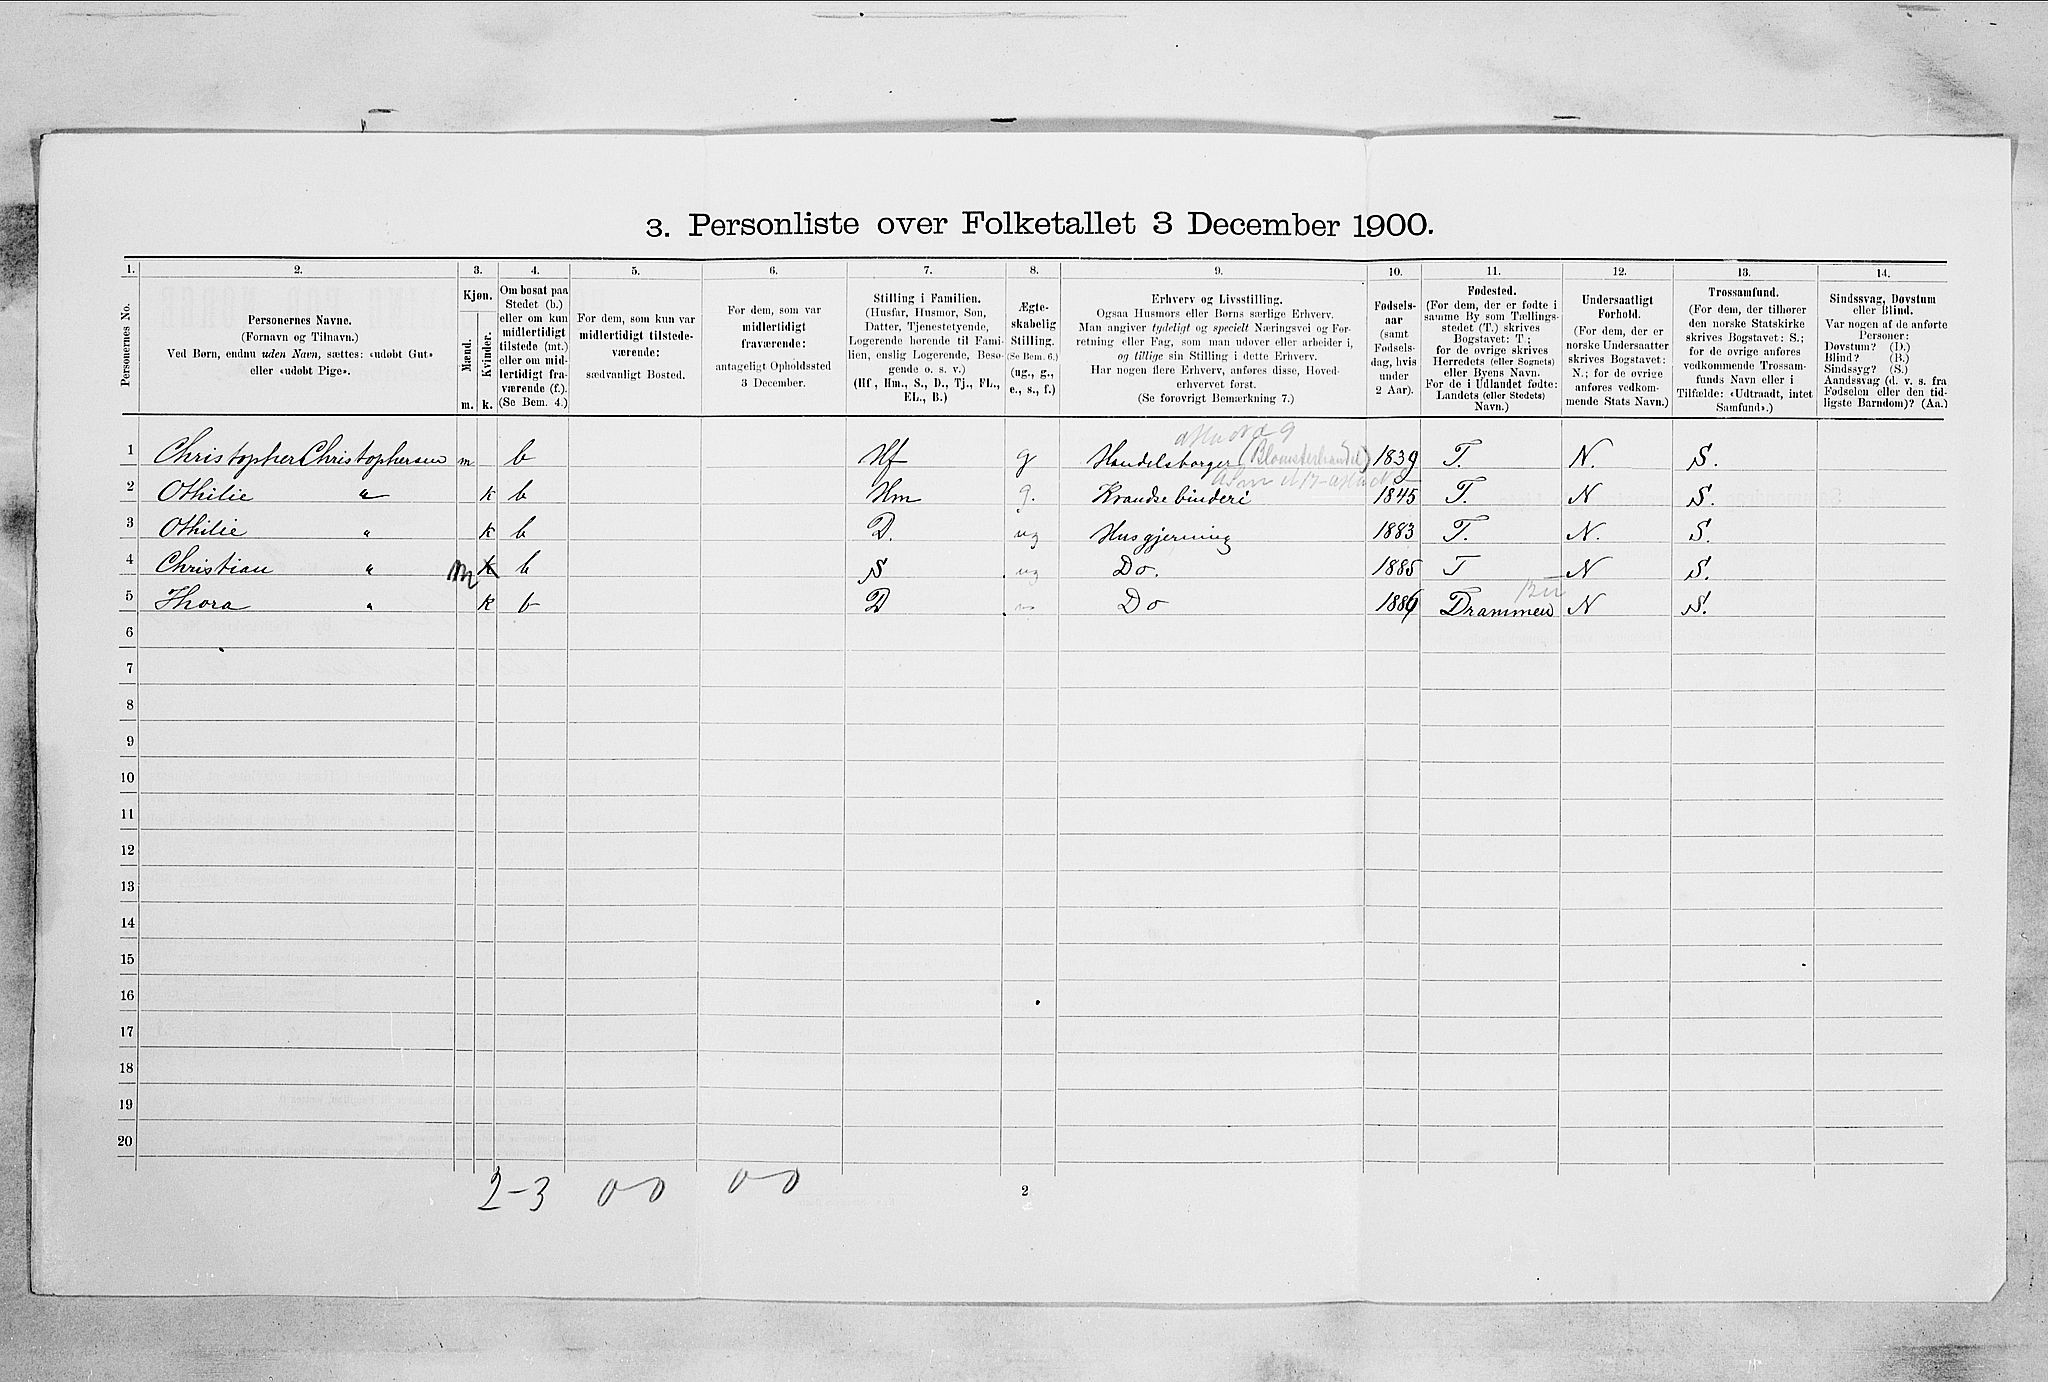 3. Personliste over Folketallet 3 December 1900.
1. 2. 3. 4. 5. 6. 7. 8. 9. 10. 11. 12. 13. 14.
Personernes No.
Personernes Navne.
(Fornavn og Tilnavn.)
Ved Børn, endnu uden Navn, sættes: «udobt Gut»
eller «udobt Pige».
Kjøn.
Mænd.
m.
Kvinder.
k.
Om bosat paa
Stedet (b.)
eller om kun
midlertidigt
tilstede (mt.)
eller om mid-
lertidigt fra-
værende (f.).
(Se Bem. 4.)
For dem, som kun var
midlertidigt tilstede-
værende:
sædvanligt Bosted.
For dem, som var
midlertidigt
fraværende:
antageligt Opholdssted
3 December.
Stilling i Familien.
(Husfar, Husmor, Søn,
Datter, Tjenestetyende,
Logerende hørende til Fami-
lien, enslig Logerende, Besø-
gende o. s. v.)
(Hf, Hm., S., D., Tj., FL.,
EL., B.)
Ægte-
skabelig
Stilling.
(Se Bem. 6.)
(ug., g.,
e., s., f.)
Erhverv og Livsstilling.
Ogsaa Husmors eller Børns særlige Erhverv.
Man angiver tydeligt og specielt Næringsvei og For-
retning eller Fag, som man udover eller arbeider i,
og tillige sin Stilling i dette Erhverv.
Har nogen flere Erhverv, anføres disse, Hoved-
erhvervet først.
(Se forøvrigt Bemærkning 7.)
Fødsels-
aar
(samt
Fødsels-
dag, hvis
under
2 Aar).
Fødested.
(For dem, der er fødte i
samme By som Tællings-
stedet (T.) skrives
Bogstavet: T;
for de øvrige skrives
Herredets (eller Sognets)
eller Byens Navn.
For de i Udlandet fødte:
Landets (eller Stedets)
Navn.)
Undersaatligt
Forhold.
(For dem, der er
norske Undersaatter
skrives Bogstavet:
N.; for de øvrige
anføres vedkom-
mende Stats Navn.)
Trossamfund.
(For dem, der tilhører
den norske Statskirke
skrives Bogstavet: S.;
for de øvrige anføres
vedkommende Trossam-
funds Navn eller i
Tilfælde: «Udtraadt, intet
Samfund».)
Sindssvag, Døvstum
eller Blind.
Var nogen af de anførte
Personer:
Døvstum? (D.)
Blind? (B.)
Sindssyg? (S.)
Aandssvag (d. v. s. fra
Fødselen eller den tid-
ligste Barndom)? (Aa.)
1 Christopher Christophersen m b Hf g Handelsborger (Blomsterhandel) 1839 T. N. S.
2 Othilie " k b Hm g. Krandsebinderi 1845 T. N S.
3 Othilie " k b D. ug Husgjerning 1883 T. N. S.
4 Christian " m k b S ug Do. 1885 T N S.
5 Thora " k b D " Do 1889 Drammen N S.
6
7
8
9
10
11
12
13
14
15
16
17
18
19
20
2-3 0-0 0-0 2